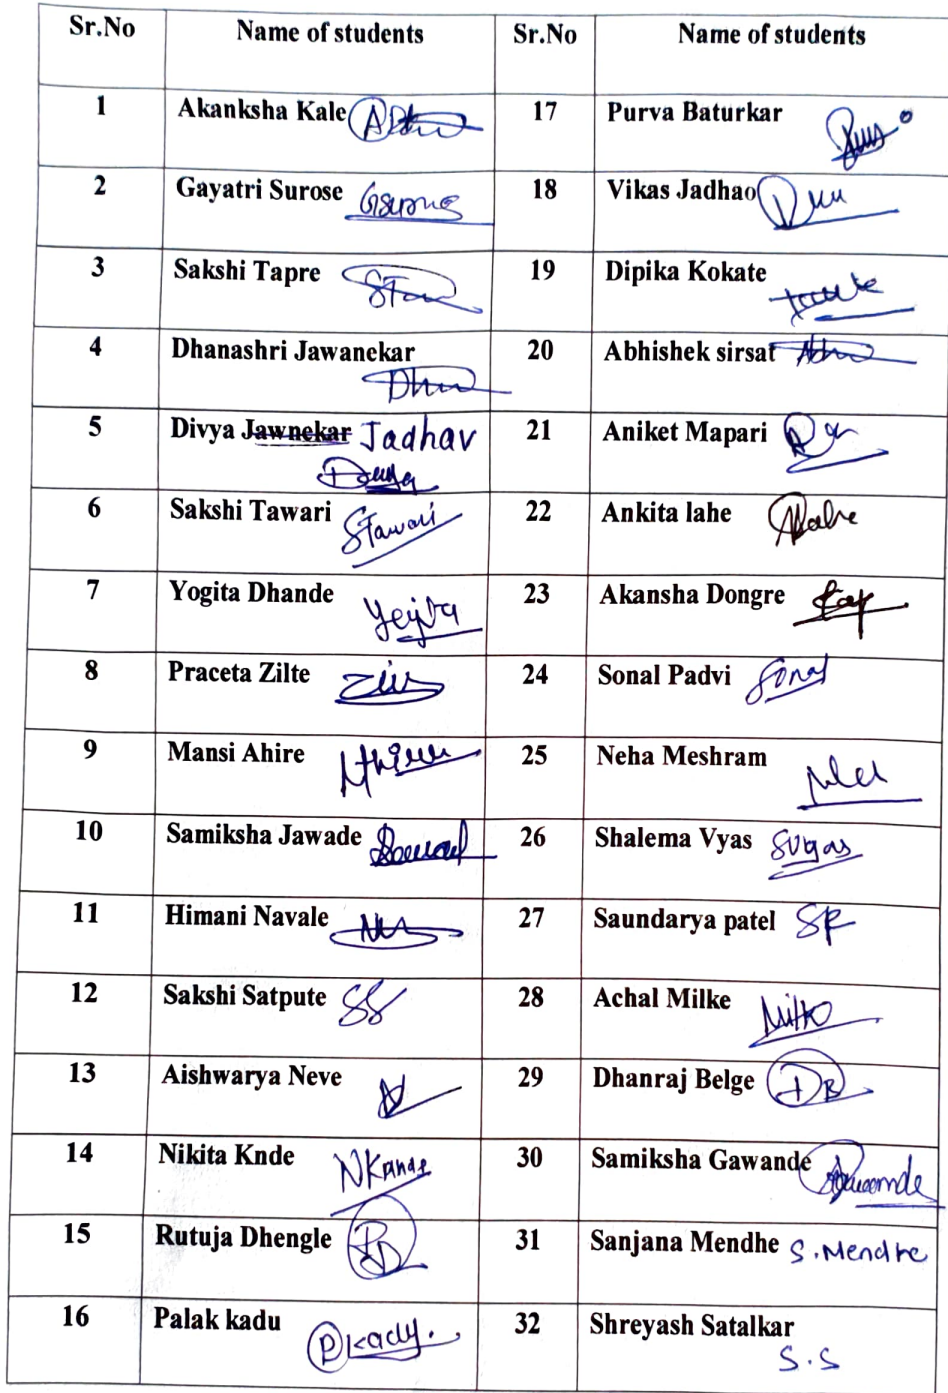 Sr.No Name of students Sr.No Name of students
1 Akanksha Kale 17 Purva Baturkar
2 Gayatri Surose 18 Vikas Jadhao
3 Sakshi Tapre 19 Dipika Kokate
4 Dhanashri Jawanekar 20 Abhishek sirsat
5 Divya Jawnekar Jadhav 21 Aniket Mapari
6 Sakshi Tawari STawari 22 Ankita lahe
7 Yogita Dhande 23 Akansha Dongre
8 Praceta Zilte 24 Sonal Padvi Sonal
9 Mansi Ahire 25 Neha Meshram
10 Samiksha Jawade 26 Shalema Vyas
11 Himani Navale 27 Saundarya patel SP
12 Sakshi Satpute SS 28 Achal Milke
13 Aishwarya Neve 29 Dhanraj Belge DB
14 Nikita Knde 30 Samiksha Gawande
15 Rutuja Dhengle RD 31 Sanjana Mendhe S.Mendhe
16 Palak kadu Pkadu. 32 Shreyash Satalkar
S.S